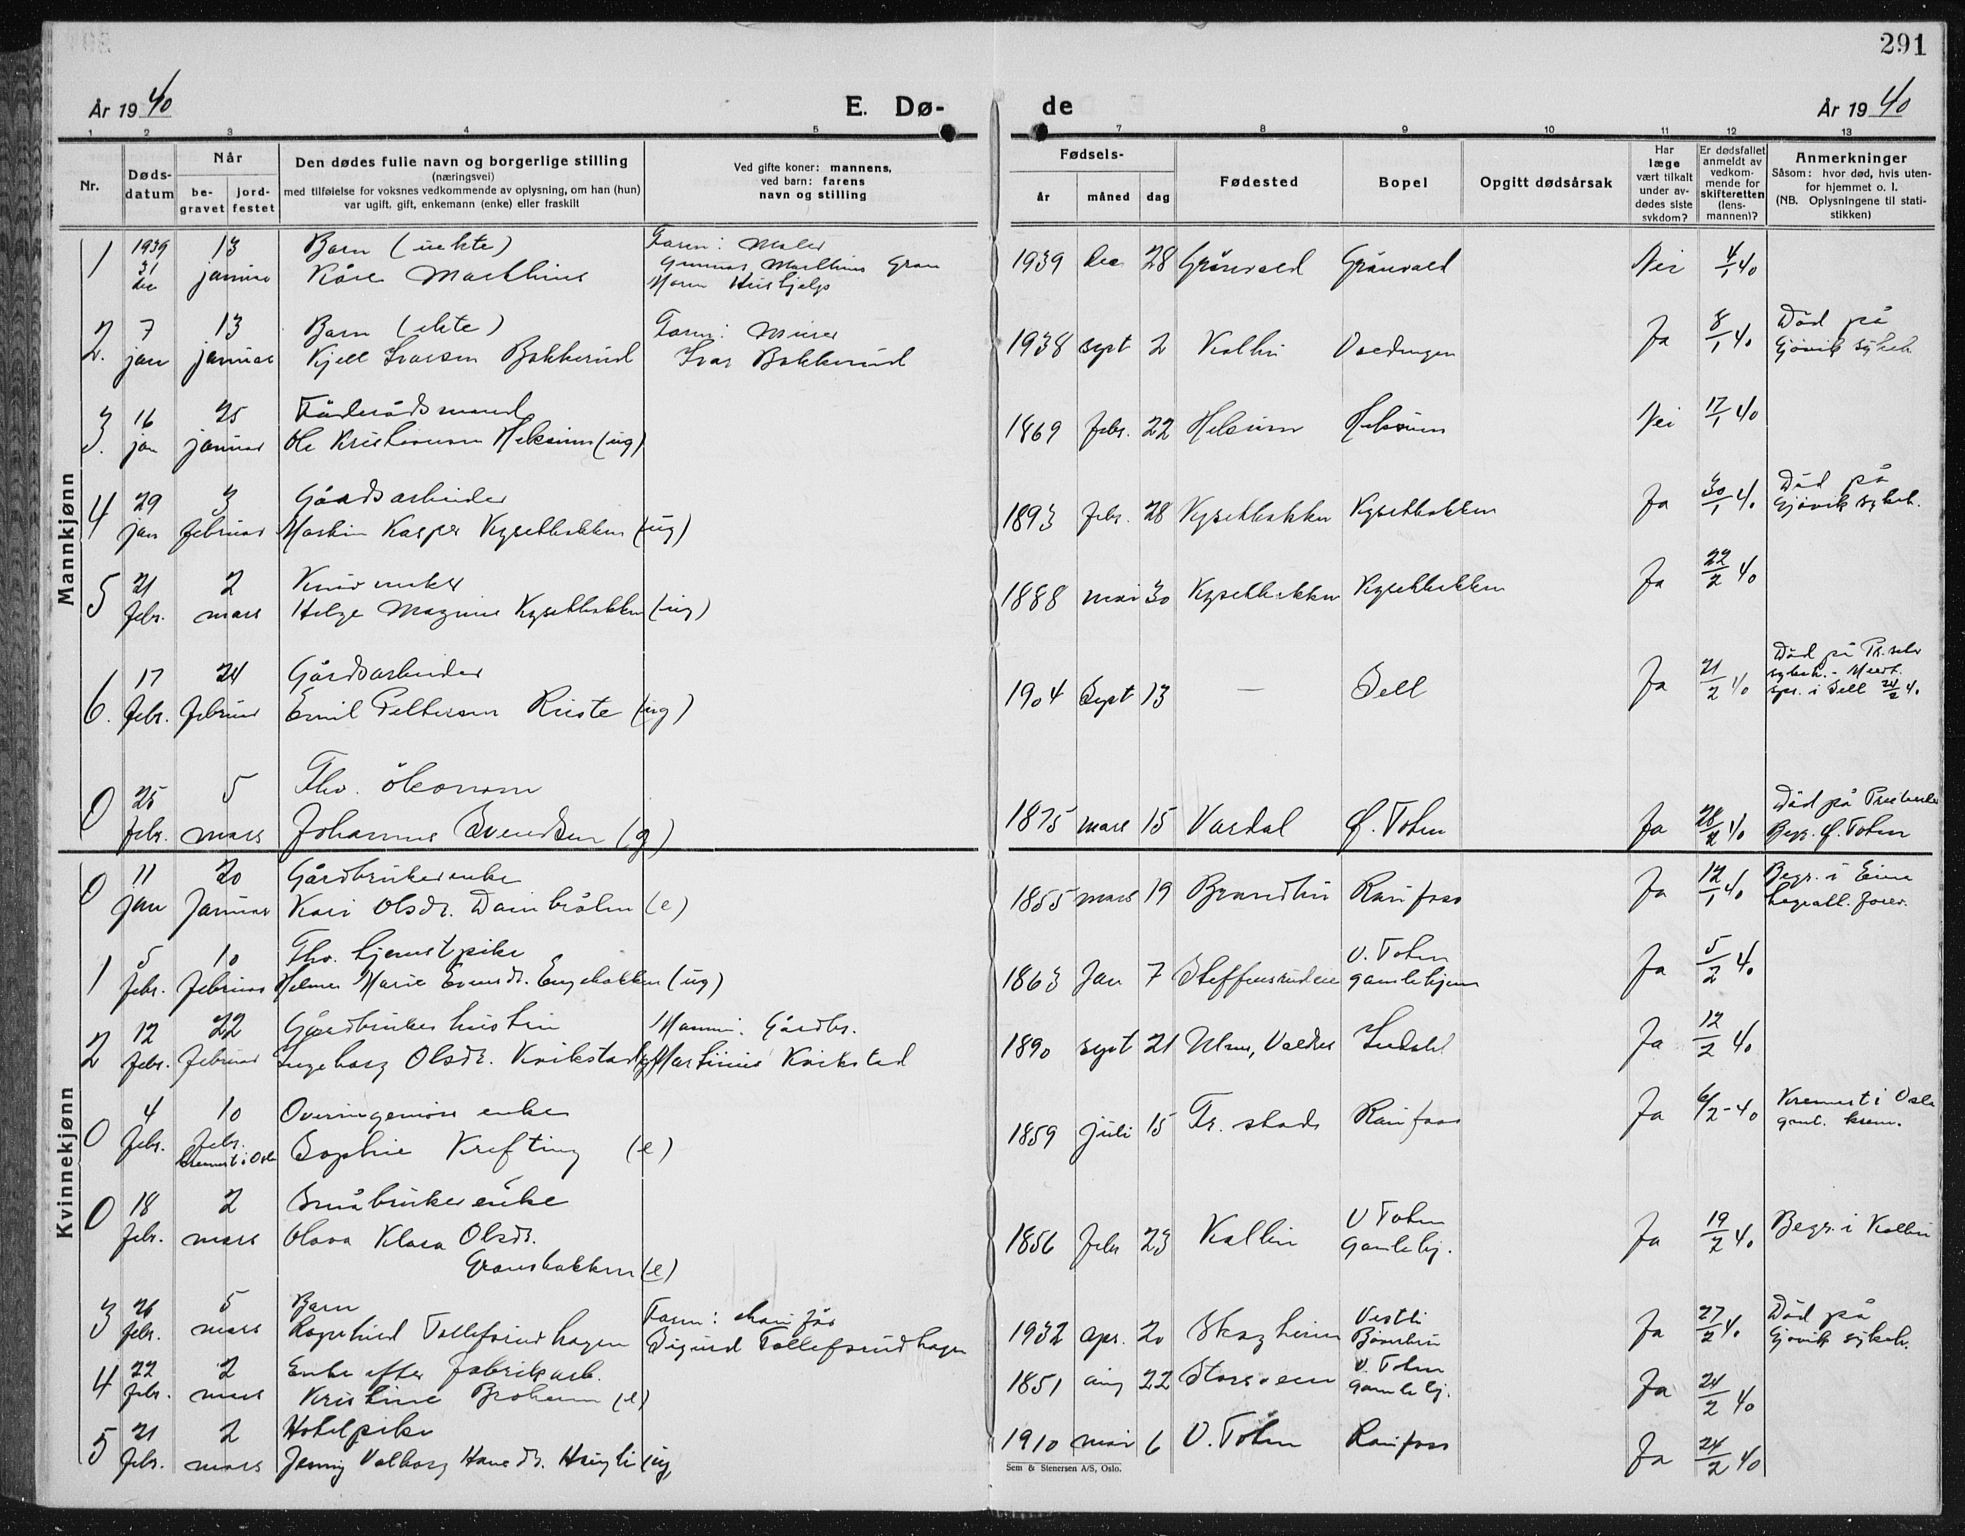 291
År 1940 E. Dø- de År 1940
1 2 3 4 5 7 8 9 10 11 12 13
Nr. Døds-datum Når be-gravet jord-festet
Den dødes fulle navn og borgerlige stilling
(næringsvei)
med tilføielse for voksnes vedkommende av oplysning, om han (hun)
var ugift, gift, enkemann (enke) eller fraskilt
Ved gifte koner: mannens,
ved barn: farens
navn og stilling
Fødsels- år måned dag
Fødested Bopel Opgitt dødsårsak
Har læge vært tilkalt under av-dødes siste sykdom?
Er dødsfallet anmeldt av vedkom-mende for skifteretten (lens-mannen)?
Anmerkninger
Såsom: hvor død, hvis uten-
for hjemmet o. l.
(NB. Oplysningene til stati-
stikken)
Mannkjønn
1 1939 13 Barn (uekte) Faren: Maler
31 des januar Kåre Marthinus Gunnar Marthins Gran
1939 des 28 Grönvold Grönvold Nei 4/1 40
2. 7 13 Barn (ekte) Faren: Murer
jan januar Kjell Ivarsen Bakkerud Ivar Bakkerud
1938 sept 2 Kolbu Ja 8/1 40 Död på
Gjövik sykeh.
3. 16 25
jan januar Ole (ug)
1869 febr. 22 Nei 17/1 40
4 29 3 Gårdsarbeider
jan februar Martin Kasper Kysetbakken (ug)
1893 febr. 28 Kysetbakken Kysetbakken Ja 30/1 40 Död på
Gjövik sykeh.
5 21 2
febr. mars Helge Magnus Kysetbakken (ug)
1888 mai 30 Kysetbakken Kysetbakken Ja 22/2 40
6. 17 24 Gårdsarbeider
febr. februar Emil Pettersen Riste (ug)
1904 Sept 13 — Sell Ja 21/2 40 Död på
i Sell 24/2 40
0 25 5 Fhv. ökonom
febr. mars Johannes Svendsen (g)
1875 mars 15 Vardal Ö. Toten Ja 28/2 40 Död på
Begr. Ö. Toten
Kvinnekjønn
0 11 20 Gårdbrukerenke
jan Januar Kari Olsdr. (e)
1855 mars 19 Brandbu Raufoss Ja 12/1 40 Begr. i Eina
1 5 10 Fhv. tjenestpike
febr. februar Marie Evensdr. Engebakken (ug)
1863 Jan 7 V. Toten
gamlehjem Ja 5/2 40
2 12 22 Gårdbrukerhustru Mannen: Gårdbr.
febr. februar Ingeborg Olsdr. Kvikstad (g) Martinius Kvikstad
1890 sept 21 Ja 12/2 40
0 4 10 Overingeniör enke
febr. febr. Sophie Krefting (e)
kremert i Oslo
1859 juli 15 Fr. stad Raufoss Ja 6/2-40 Kremert i Oslo
gml. krem.
0 18 2 Småbrukerenke
febr. mars Olava Klara Olsdr.
(e)
1856 febr 23 Kolbu V Toten
Gamlehj. Ja 19/2 40 Begr. i Kolbu
3 26 5 Barn Faren: Sjaufför
febr. mars Ragnhild Tollefsrudhagen Sigurd Tollefsrudhagen
1932 apr. 20 Ja 27/2 40 Död på
Gjövik sykeh.
4 22 2 Enke efter fabrikarb.
febr. mars Kristine (e)
1851 aug 22 V. Toten
Gamlehj. Ja 24/2 40
5 21 2 Hotelpike
febr. mars Jenny Valborg (ug)
1910 mai 6 V. Toten Raufoss Ja 24/2 40
Sem & Stenersen A/S, Oslo.